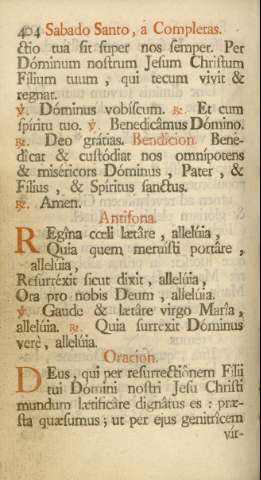 404 Sabado Santo, à Completas.
ctio tua sit super nos semper. Per
Dóminum nostrum Jesum Christum
Filium tuum, qui tecum vivit &
regnat.
℣. Dóminus vobíscum. ℟. Et cum
spíritu tuo. ℣. Benedicâmus Dómino.
℟. Deo grátias. Bendicion. Bene-
dicat & custódiat nos omnipotens
& miséricors Dóminus, Pater, &
Filius, & Spíritus sanctus.
℟. Amen.
Antifona.
REgîna cœli lætâre, allelúia,
Quia quem meruísti portâre,
allelúia,
Resurréxit sicut dixit, allelúia,
Ora pro nobis Deum, allelúia.
℣. Gaude & lætâre virgo María,
allelúia. ℟. Quia surrexit Dóminus
verè, allelúia.
Oracion.
DEus, qui per resurrectiônem Filii
tui Dómini nostri Jesu Christi
mundum lætificâre dignâtus es: præ-
sta quæsumus; ut per ejus genitrícem
vir-